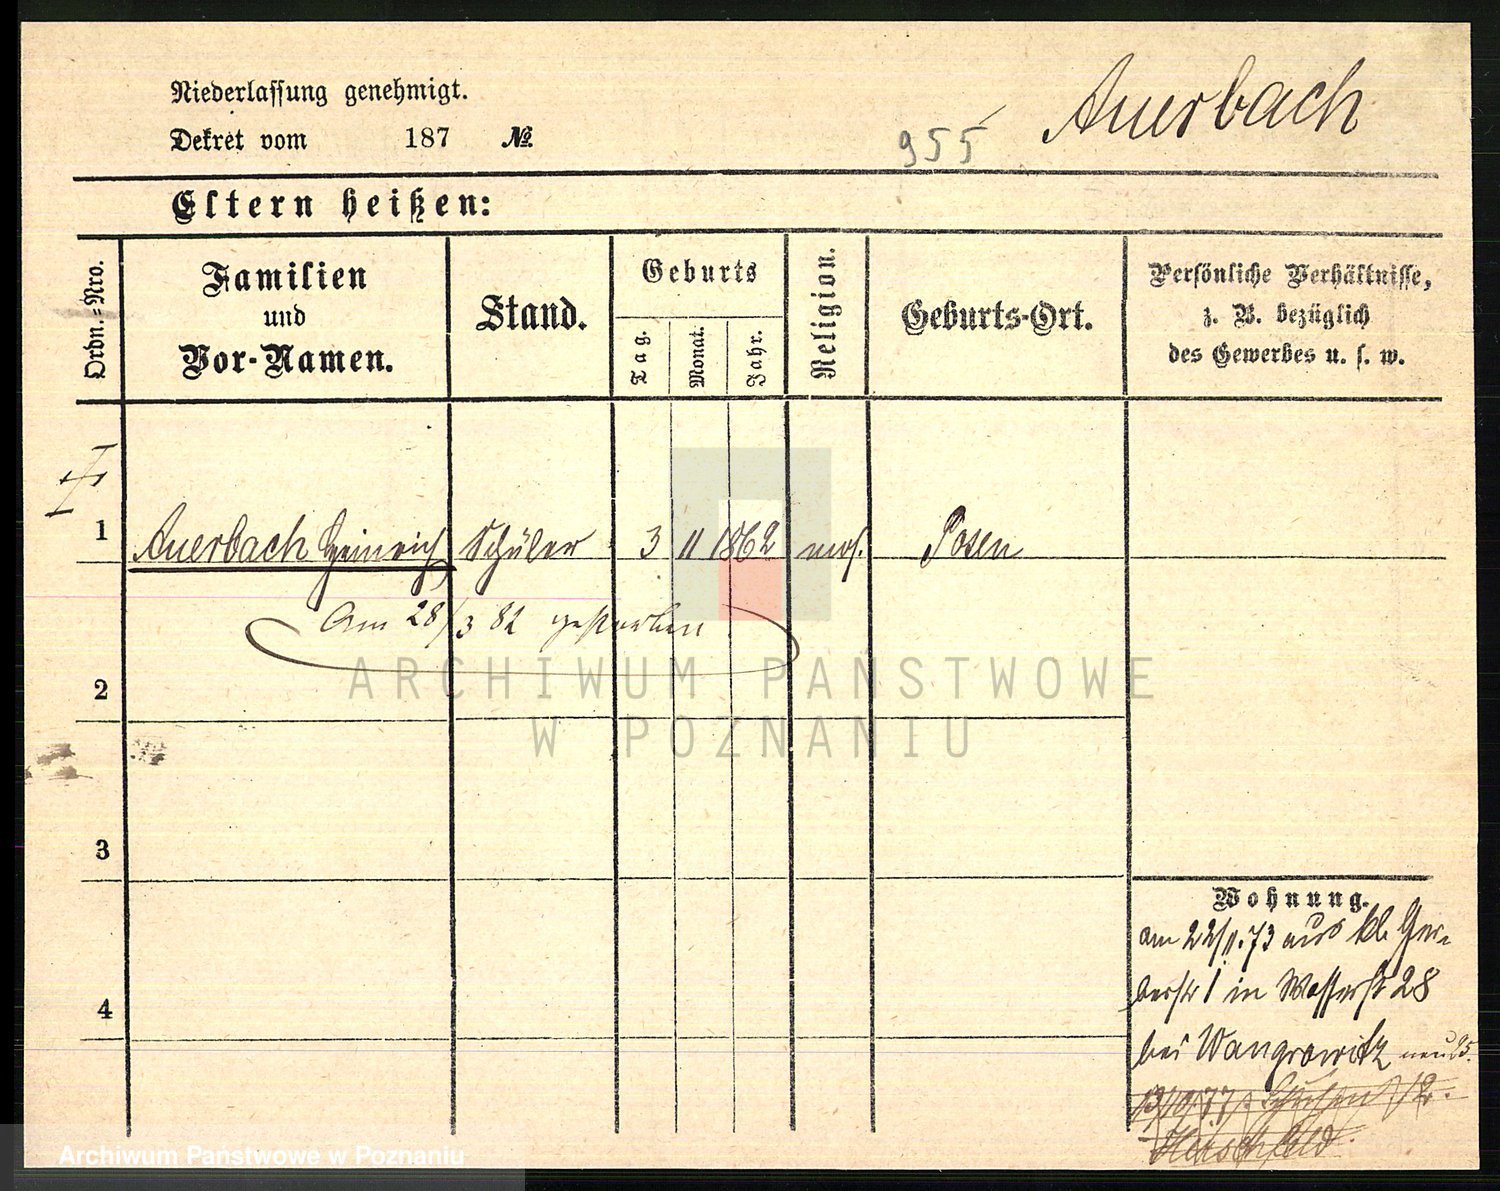 Niederlassung genehmigt.
Dekret vom 187 №
955 Auerbach
Eltern heißen:
Ordn.-Nro.
Familien
und
Vor-Namen.
Stand.
Geburts
Tag.
Monat.
Jahr.
Religion.
Geburts-Ort.
Persönliche Verhältnisse,
z. B. bezüglich
des Gewerbes u. s. w.
1 Auerbach Heinrich Schüler 3 11 1862 mos. Posen
Am 28/3 82 gestorben
ARCHIWUM PAŃSTWOWE
W POZNANIU
2
3
4
Wohnung.
am 22/11.73 aus kl. Ger-
berstr 1 in Wasserstr 28
bei Wangrowitz neu 25.
13/10.77 12.
Hirschfeld.
Archiwum Państwowe w Poznaniu